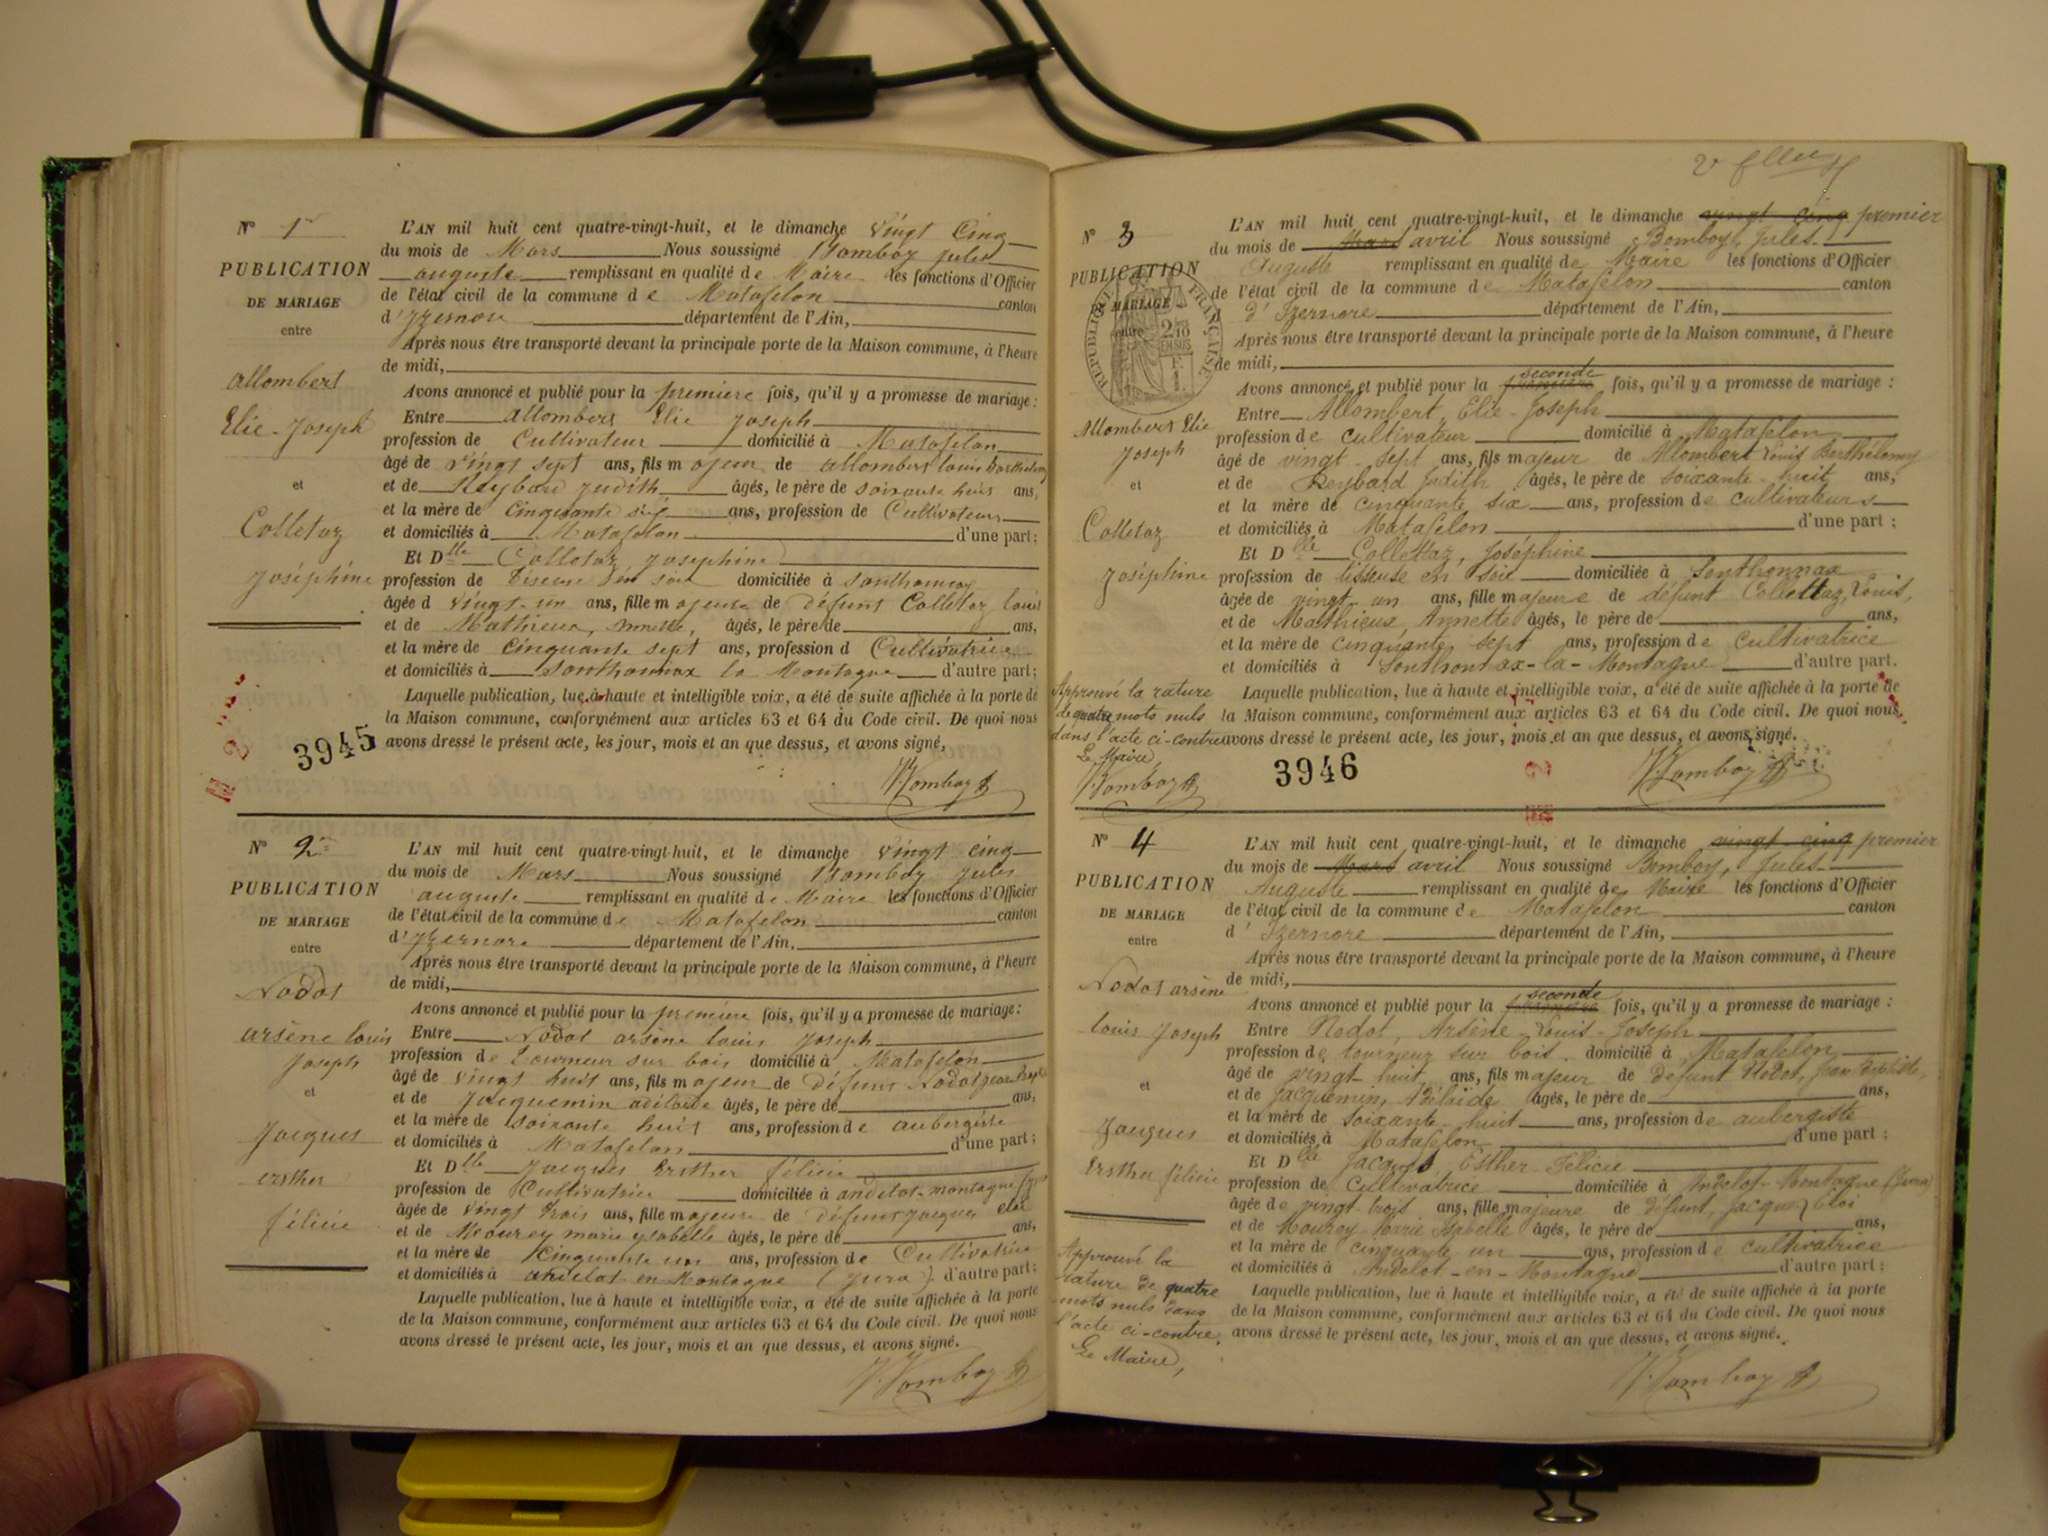 N° 1
PUBLICATION
DE MARIAGE
entre
Allombert
Elie-Joseph
et
Colletaz
Joséphine
3945
L'AN mil huit cent quatre-vingt-huit, et le dimanche vingt cinq
du mois de Mars Nous soussigné Bomboy jules
auguste remplissant en qualité de Maire les fonctions d'Officier
de l'état civil de la commune de Matafelon canton
d'Izernore département de l'Ain,
Après nous être transporté devant la principale porte de la Maison commune, à l'heure
de midi,
Avons annoncé et publié pour la première fois, qu'il y a promesse de mariage :
Entre Allombert Elie Joseph
profession de Cultivateur domicilié à Matafelon
âgé de vingt sept ans, fils majeur de allombert louis barthelemy
et de Reybard judith, âgés, le père de soixante huit ans,
et la mère de Cinquante six ans, profession de Cultivateurs
et domiciliés à Matafelon d'une part;
Et Dlle Colletaz josephine
profession de Tiseuse en soie domiciliée à Sonthonnax
âgée d vingt-un ans, fille majeure de défunt Colletaz louis
et de Mathieux, annette, âgés, le père de ans,
et la mère de cinquante sept ans, profession d Cultivatrice
et domiciliés à Sonthonnax la Montagne d'autre part;
Laquelle publication, lue à haute et intelligible voix, a été de suite affichée à la porte de
la Maison commune, conformément aux articles 63 et 64 du Code civil. De quoi nous
avons dressé le présent acte, les jour, mois et an que dessus, et avons signé,
Bomboy
N° 2
PUBLICATION
DE MARIAGE
entre
Nodot
arsène louis
Joseph
et
Jacques
ersther
félicie
L'AN mil huit cent quatre-vingt-huit, et le dimanche vingt cinq
du mois de Mars Nous soussigné Bomboy jules
auguste remplissant en qualité de Maire les fonctions d'Officier
de l'état civil de la commune de Matafelon canton
d'Izernore département de l'Ain,
Après nous être transporté devant la principale porte de la Maison commune, à l'heure
de midi,
Avons annoncé et publié pour la première fois, qu'il y a promesse de mariage :
Entre Nodot arsène louis Joseph
profession de Tourneur sur bois domicilié à Matafelon
âgé de vingt huit ans, fils majeur de défunt Nodot jean Bapte
et de Jacquemin adélaïde âgés, le père de ans,
et la mère de soixante huit ans, profession de aubergiste
et domiciliés à Matafelon d'une part ;
Et Dlle Jacques Ersther félicie
profession de Cultivatrice domiciliée à andelot-montagne
âgée de vingt trois ans, fille majeure de défunt jacques eloi
et de Mourey marie ysabelle âgés, le père de ans,
et la mère de Cinquante un ans, profession de Cultivatrice
et domiciliés à andelot en Montagne (jura) d'autre part;
Laquelle publication, lue à haute et intelligible voix, a été de suite affichée à la porte
de la Maison commune, conformément aux articles 63 et 64 du Code civil. De quoi nous
avons dressé le présent acte, les jour, mois et an que dessus, et avons signé.
Bomboy
N° 3
PUBLICATION
DE MARIAGE
entre
REPUBLIQUE FRANÇAISE
Allombert Elie
Joseph
et
Colletaz
Joséphine
Approuvé la rature
de quatre mots nuls
dans l'acte ci-contre
Le Maire,
Bomboy
3946
L'AN mil huit cent quatre-vingt-huit, et le dimanche vingt cinq premier
du mois de Mars avril Nous soussigné Bomboy, Jules
Auguste remplissant en qualité de Maire les fonctions d'Officier
de l'état civil de la commune de Matafelon canton
d' Izernore département de l'Ain,
Après nous être transporté devant la principale porte de la Maison commune, à l'heure
de midi,
Avons annoncé et publié pour la première seconde fois, qu'il y a promesse de mariage :
Entre Allombert, Elie-Joseph
profession de cultivateur domicilié à Matafelon
âgé de vingt-sept ans, fils majeur de Allombert Louis Berthélemy
et de Reybard Judith âgés, le père de soixante-huit ans,
et la mère de cinquante six ans, profession de cultivateurs
et domiciliés à Matafelon d'une part ;
Et Dlle Collettaz, Joséphine
profession de tisseuse en soie domiciliée à Sonthonnax
âgée de vingt-un ans, fille majeure de défunt Collettaz, Louis,
et de Mathieux, Annette âgés, le père de ans,
et la mère de cinquante sept ans, profession de cultivatrice
et domiciliés à Sonthonnax-la-Montagne d'autre part.
Laquelle publication, lue à haute et intelligible voix, a été de suite affichée à la porte de
la Maison commune, conformément aux articles 63 et 64 du Code civil. De quoi nous
avons dressé le présent acte, les jour, mois et an que dessus, et avons signé.
Bomboy
N° 4
PUBLICATION
DE MARIAGE
entre
Nodot arsène
louis Joseph
et
Jacques
Ersther félicie
Approuvé la
rature de quatre
mots nuls dans
l'acte ci-contre.
Le Maire,
L'AN mil huit cent quatre-vingt-huit, et le dimanche vingt cinq premier
du mois de Mars avril Nous soussigné Bomboy, Jules
Auguste remplissant en qualité de Maire les fonctions d'Officier
de l'état civil de la commune de Matafelon canton
d' Izernore département de l'Ain,
Après nous être transporté devant la principale porte de la Maison commune, à l'heure
de midi,
Avons annoncé et publié pour la première seconde fois, qu'il y a promesse de mariage :
Entre Nodot, Arsène-Louis-Joseph
profession de tourneur sur bois. domicilié à Matafelon
âgé de vingt-huit ans, fils majeur de défunt Nodot, Jean Baptiste,
et de Jacquemin, Adélaïde âgés, le père de ans,
et la mère de soixante-huit ans, profession de aubergiste
et domiciliés à Matafelon d'une part ;
Et Dlle Jacques, Esther-Félicie
profession de Cultivatrice domiciliée à Andelot-Montagne (Jura)
âgée de vingt-trois ans, fille majeure de défunt, Jacques Eloi
et de Mourey Marie Isabelle âgés, le père de ans,
et la mère de cinquante un ans, profession de cultivatrice
et domiciliés à Andelot-en-Montagne d'autre part ;
Laquelle publication, lue à haute et intelligible voix, a été de suite affichée à la porte
de la Maison commune, conformément aux articles 63 et 64 du Code civil. De quoi nous
avons dressé le présent acte, les jour, mois et an que dessus, et avons signé.
Bomboy